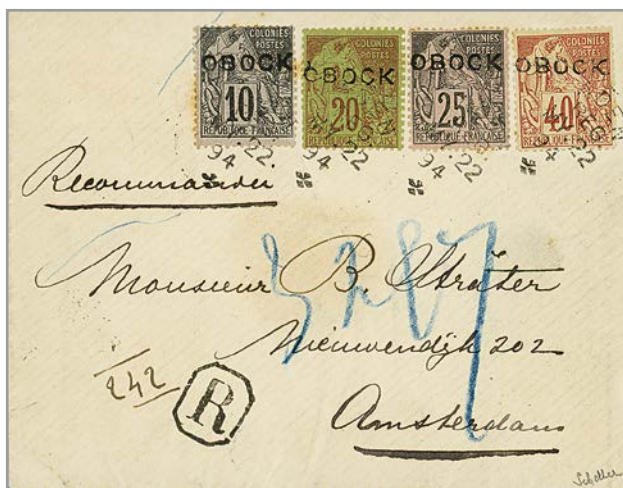 COLONIES POSTES OBOCK 10 RÉPUBLIQUE FRANÇAISE
COLONIES POSTES OBOCK 20 RÉPUBLIQUE FRANÇAISE
COLONIES POSTES OBOCK 25 RÉPUBLIQUE FRANÇAISE
COLONIES POSTES OBOCK 40 RÉPUBLIQUE FRANÇAISE
22 94
22 94
22 94
Recommander
Monsieur B. Sträter
Nieuwendijk 202
Amsterdam
242
R